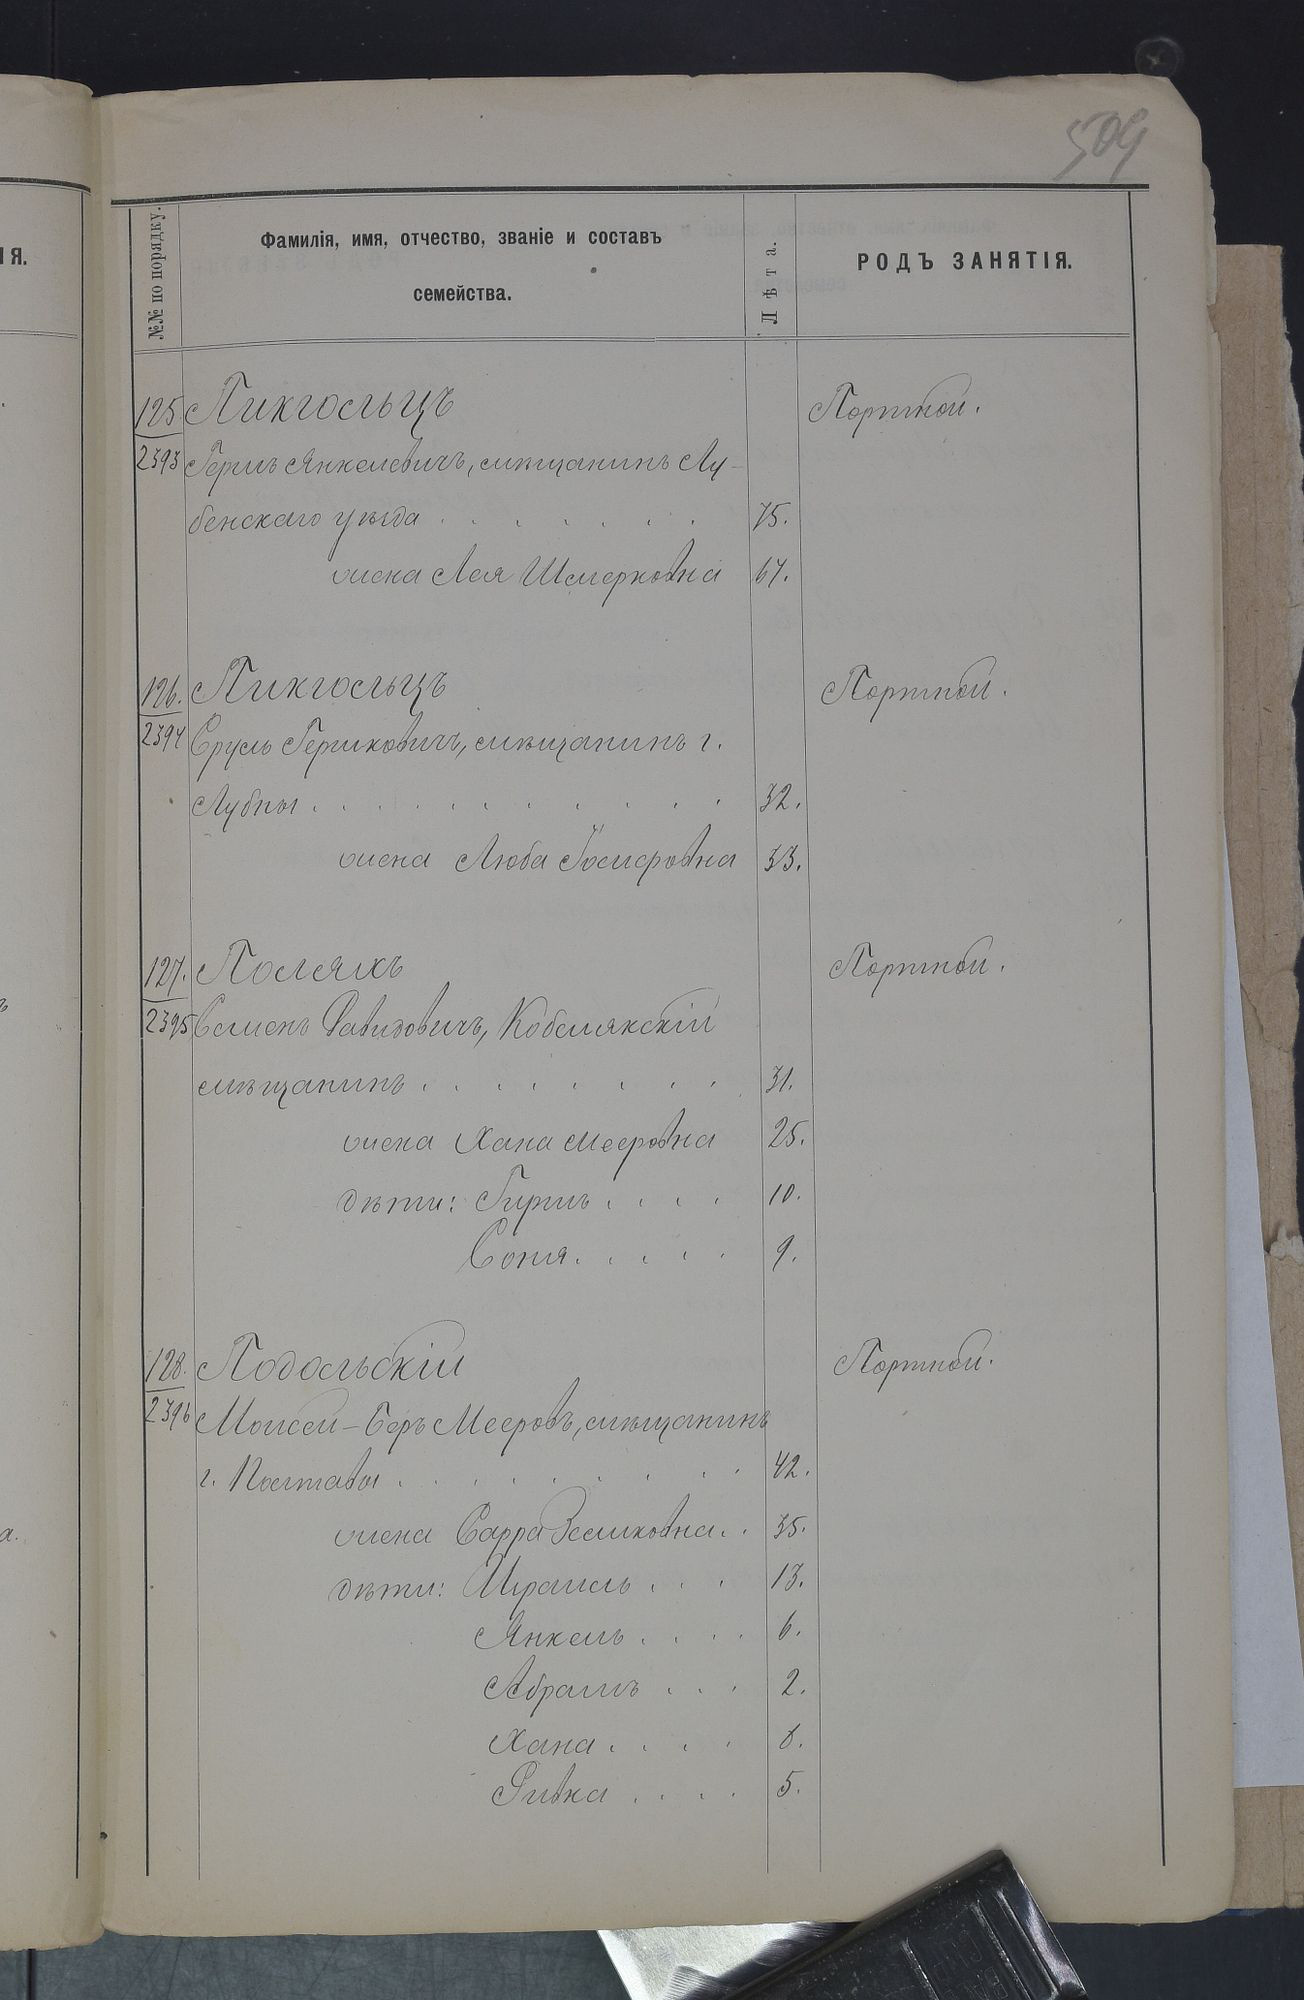 509
ІЯ.
№№ по порядку.
Фамилія, имя, отчество, званіе и составъ
семейства.
Лѣта.
РОДЪ ЗАНЯТІЯ.
125 Пикгольцъ Портной.
2393 Гершъ Янкелевичъ, мѣщанинъ Лу-
бенскаго уѣзда . . . . . . . 75.
жена Лея Шмерковна 67.
126. Пикгольцъ Портной.
2394 Сруль Гершковичъ, мѣщанинъ г.
Лубны . . . . . . . . . . 32.
жена Люба Іосиеровна 33.
127. Полякъ Портной.
2395 Семенъ Давидовичъ, Кобелякскій
мѣщанинъ . . . . . . . . 31.
жена Хана Мееровна 25.
дѣти: Гиршъ . . . . 10.
Соня . . . . . 9.
128. Подольскій Портной.
2396 Моисей-Беръ Мееровъ, мѣщанинъ
г. Полтавы . . . . . . . . 42.
жена Сарра Зеликовна . . 35.
дѣти: Израиль . . . 13.
Янкель . . . . 6.
Абрамъ . . . 2.
Хана . . . . 8.
Ривка . . . . 5.
а.